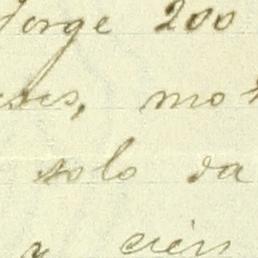 Jorge 200
eses, mo
solo da
y cien